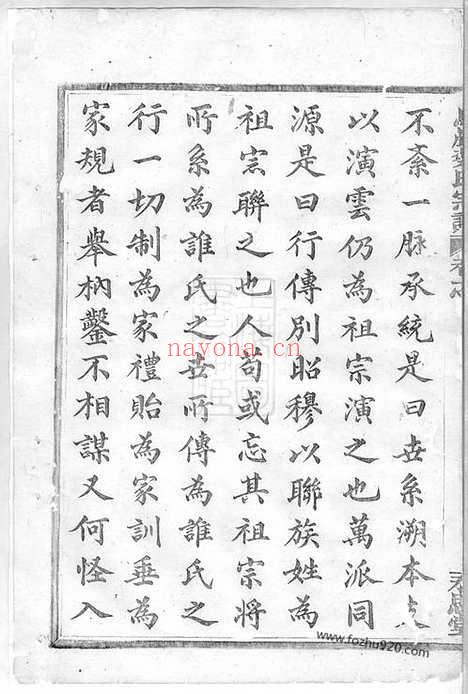 不紊一脉承統是曰世系溯本支
以演雲仍為祖宗演之也萬派同
源是曰行傳別昭穆以聯族姓為
祖宗聯之也人苟或忘其祖宗將
所系為誰氏之世所傳為誰氏之
行一切制為家禮貽為家訓垂為
家規者舉枘鑿不相謀又何怪入
nayona.cn
www.fozhu920.com